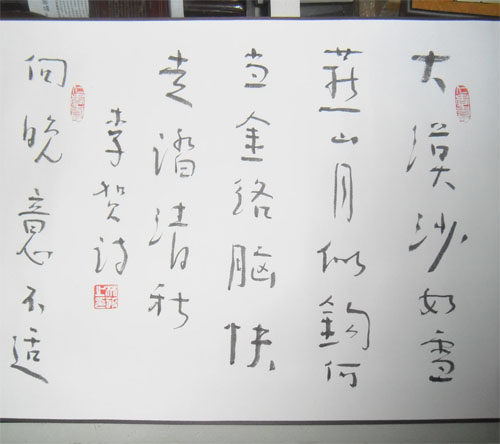 大漠沙如雪
燕山月似鉤何
当金络脑快
走踏清秋
李贺诗
向晚意不适